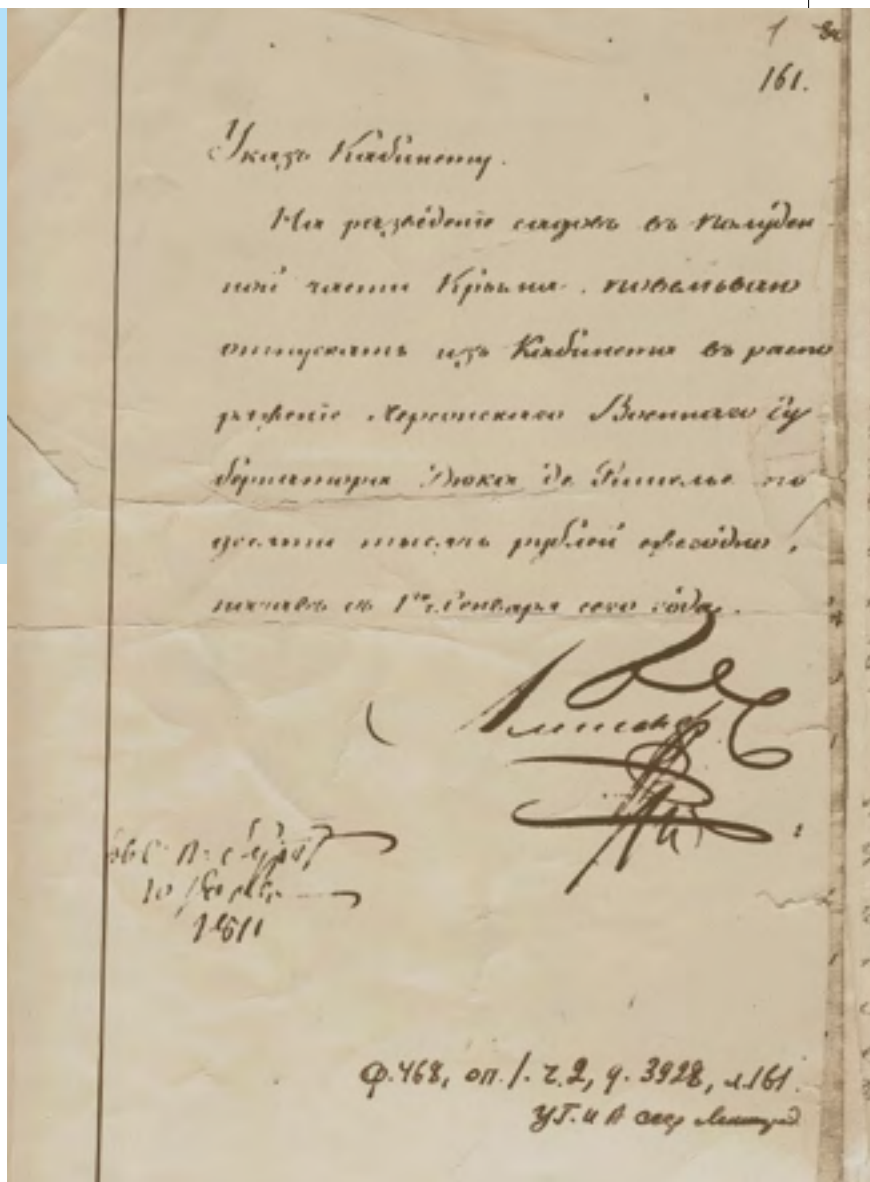 1
161.
Указъ Кабинету.
На разведеніе садовъ въ полуден-
ной части Крыма, повелѣваю
отпускать изъ Кабинета въ распо
ряженіе Херсонскаго Военнаго Гу
бернатора Дюка де Ришелье по
десяти тысячъ рублей ежегодно,
начавъ съ 1го Генваря сего года.
Александръ
въ С. П. бургѣ
10
1811
Ф. 468, оп. 1. ч. 2, д. 3928, л. 161.
ЦГИА СССР Ленинград